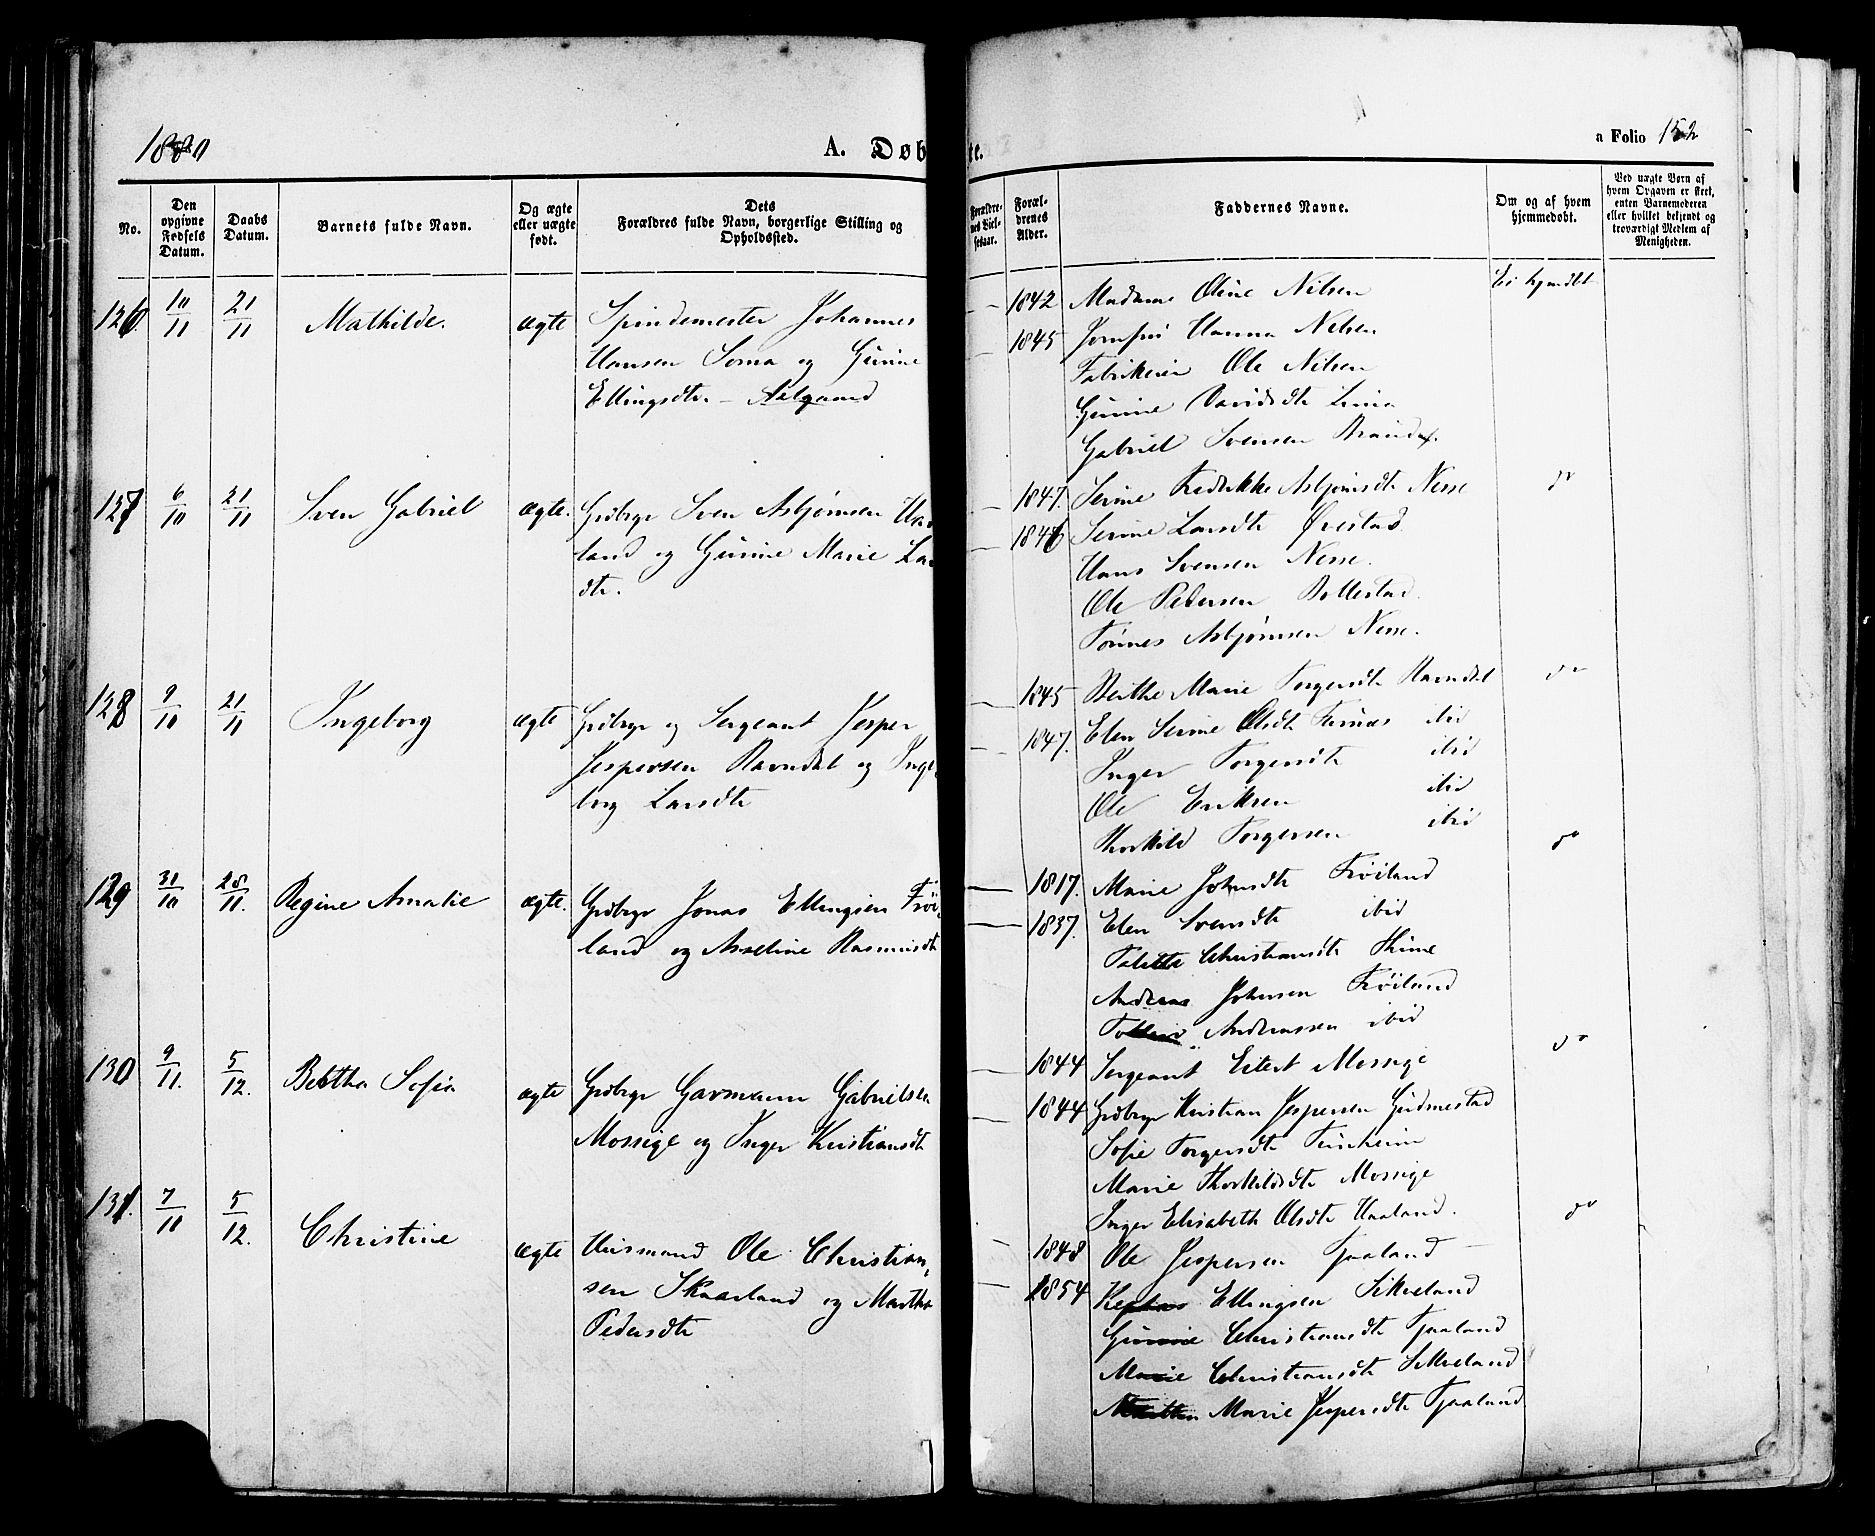 1880
A. Døbte.
a Folio 152
No.
Den opgivne Fødsels Datum.
Daabs Datum.
Barnets fulde Navn.
Og ægte eller uægte født.
Dets Forældres fulde Navn, borgerlige Stilling og Opholdssted.
Forældrenes Alder.
Faddernes Navne.
Om og af hvem hjemmedøbt.
Ved uægte Børn af hvem Opgaven er skeet, enten Barnemoderen eller hvilket bekjendt og troværdigt Medlem af Menigheden.
126. 10/11 21/11 Mathilde. ægte Spindemester Johannes
Hansen Soma og Gurine
Ellingsdtr. – Aalgaard
1842 Madame Oline Nilsen
1845 Jomfru Hanna Nilsen
Fabrikeier Ole Nilsen
Gurine Davidsdtr Lima
Gabriel Svensen
127 6/10 21/11 Sven Gabriel ægte. Grdbrgr Sven Asbjørnsen Haa
land og Gurine Marie La
dtr.
1847. Serine Fredrikke Asbjørnsdtr Nesse do
1846 Serine Larsdtr Øvestad
Hans Svensen Nesse.
Ole Pedersen Bollestad.
Tønnes Asbjørnsen Nesse.
128 9/10 21/11 Ingeborg ægte Grdbrgr og Sergeant Jesper
Jespersen Ravndal og Inge
borg Larsdtr
1845 Berthe Marie Torgersdtr Ravndal do
1847. Elen Serine Olsdtr ibid
Inger Torgersdtr ibid
Ole Eriksen ibid
Thorkild Torgersen ibid
129 31/10 28/11. Regine Amalie ægte. Grdbrgr Jonas Ellingsen Frøi
land og Asseline Rasmusdtr
do
1817. Marie Johnsdtr Frøiland
1837. Elen Svensdtr ibid
Talette Christiansdtr Thime
Andreas Johnsen Frøiland
Andreassen ibid
130 9/11. 5/12. Bertha Sofia ægte Grdbrgr Garmann Gabrielsen
Mossige og Inger Kristiansdtr
do
1844 Sergeant Eilert Mossige
1844 Grdbrgr Kristian Jespersen Gudmestad
Sofie Torgersdtr Tunheim
Marie Thorkildsdtr Mossige
Inger Elisabeth Olsdtr Haaland.
131. 7/11 5/12. Christine ægte Husmand Ole Christian
sen Skaarland og Martha
Pedersdtr
do
1848 Ole Jespersen Tjaaland
1854 Ellingsen Sikveland
Gurine Christiansdtr Tjaaland
Marie Christiansdtr Sikveland
Marie Jespersdtr Tjaaland